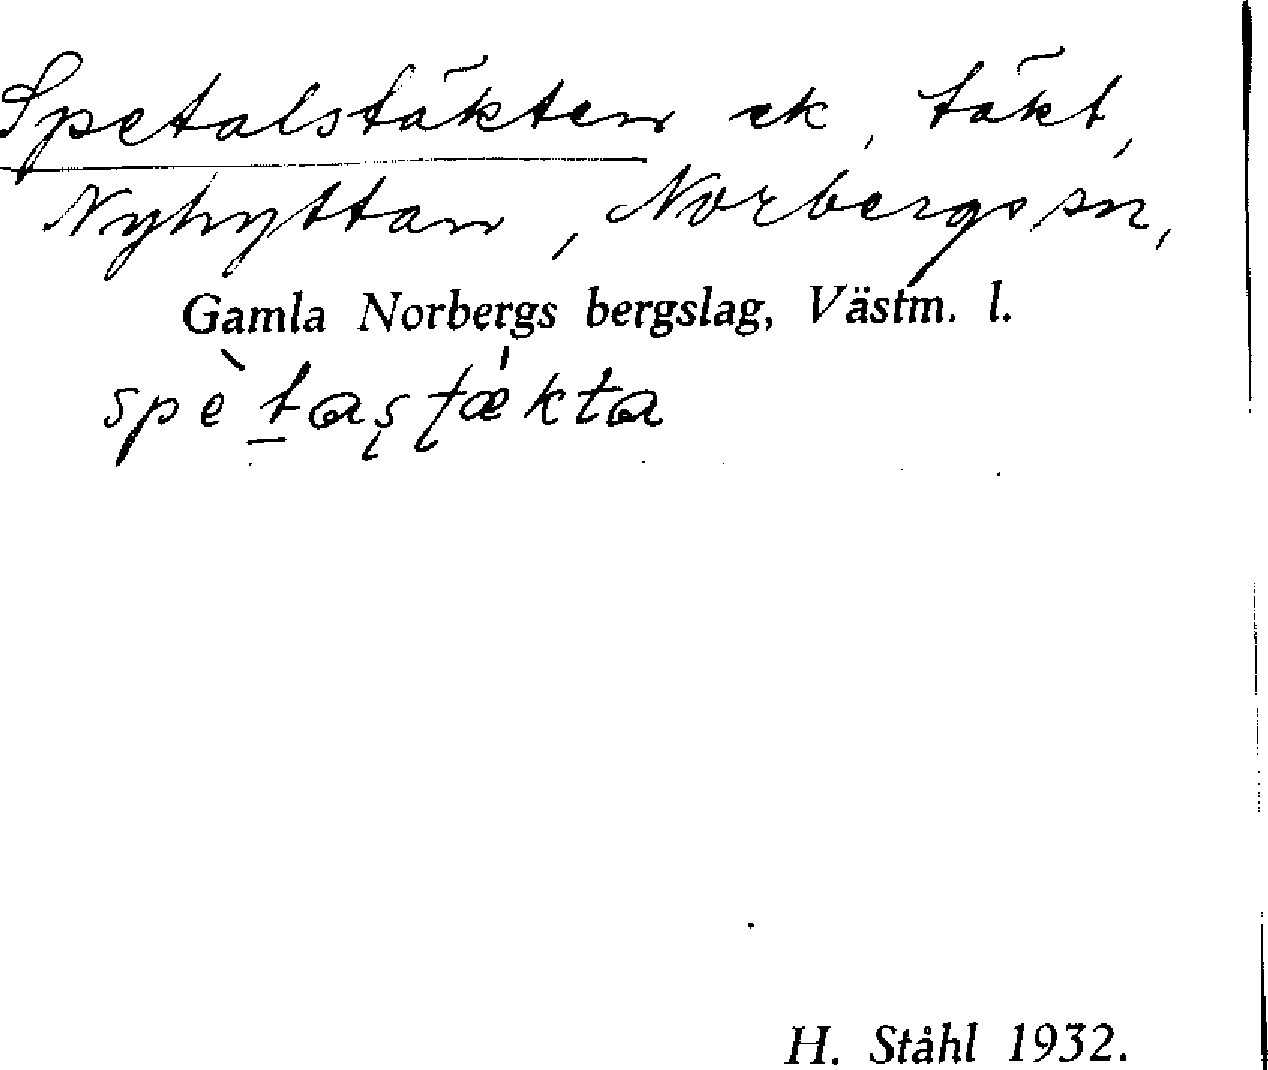 Spetalstäkten ek, täkt,
Nyhyttan, Norbergs sn,
Gamla Norbergs bergslag, Västm. l.
spè̀taʂʈǽkta
H. Ståhl 1932.